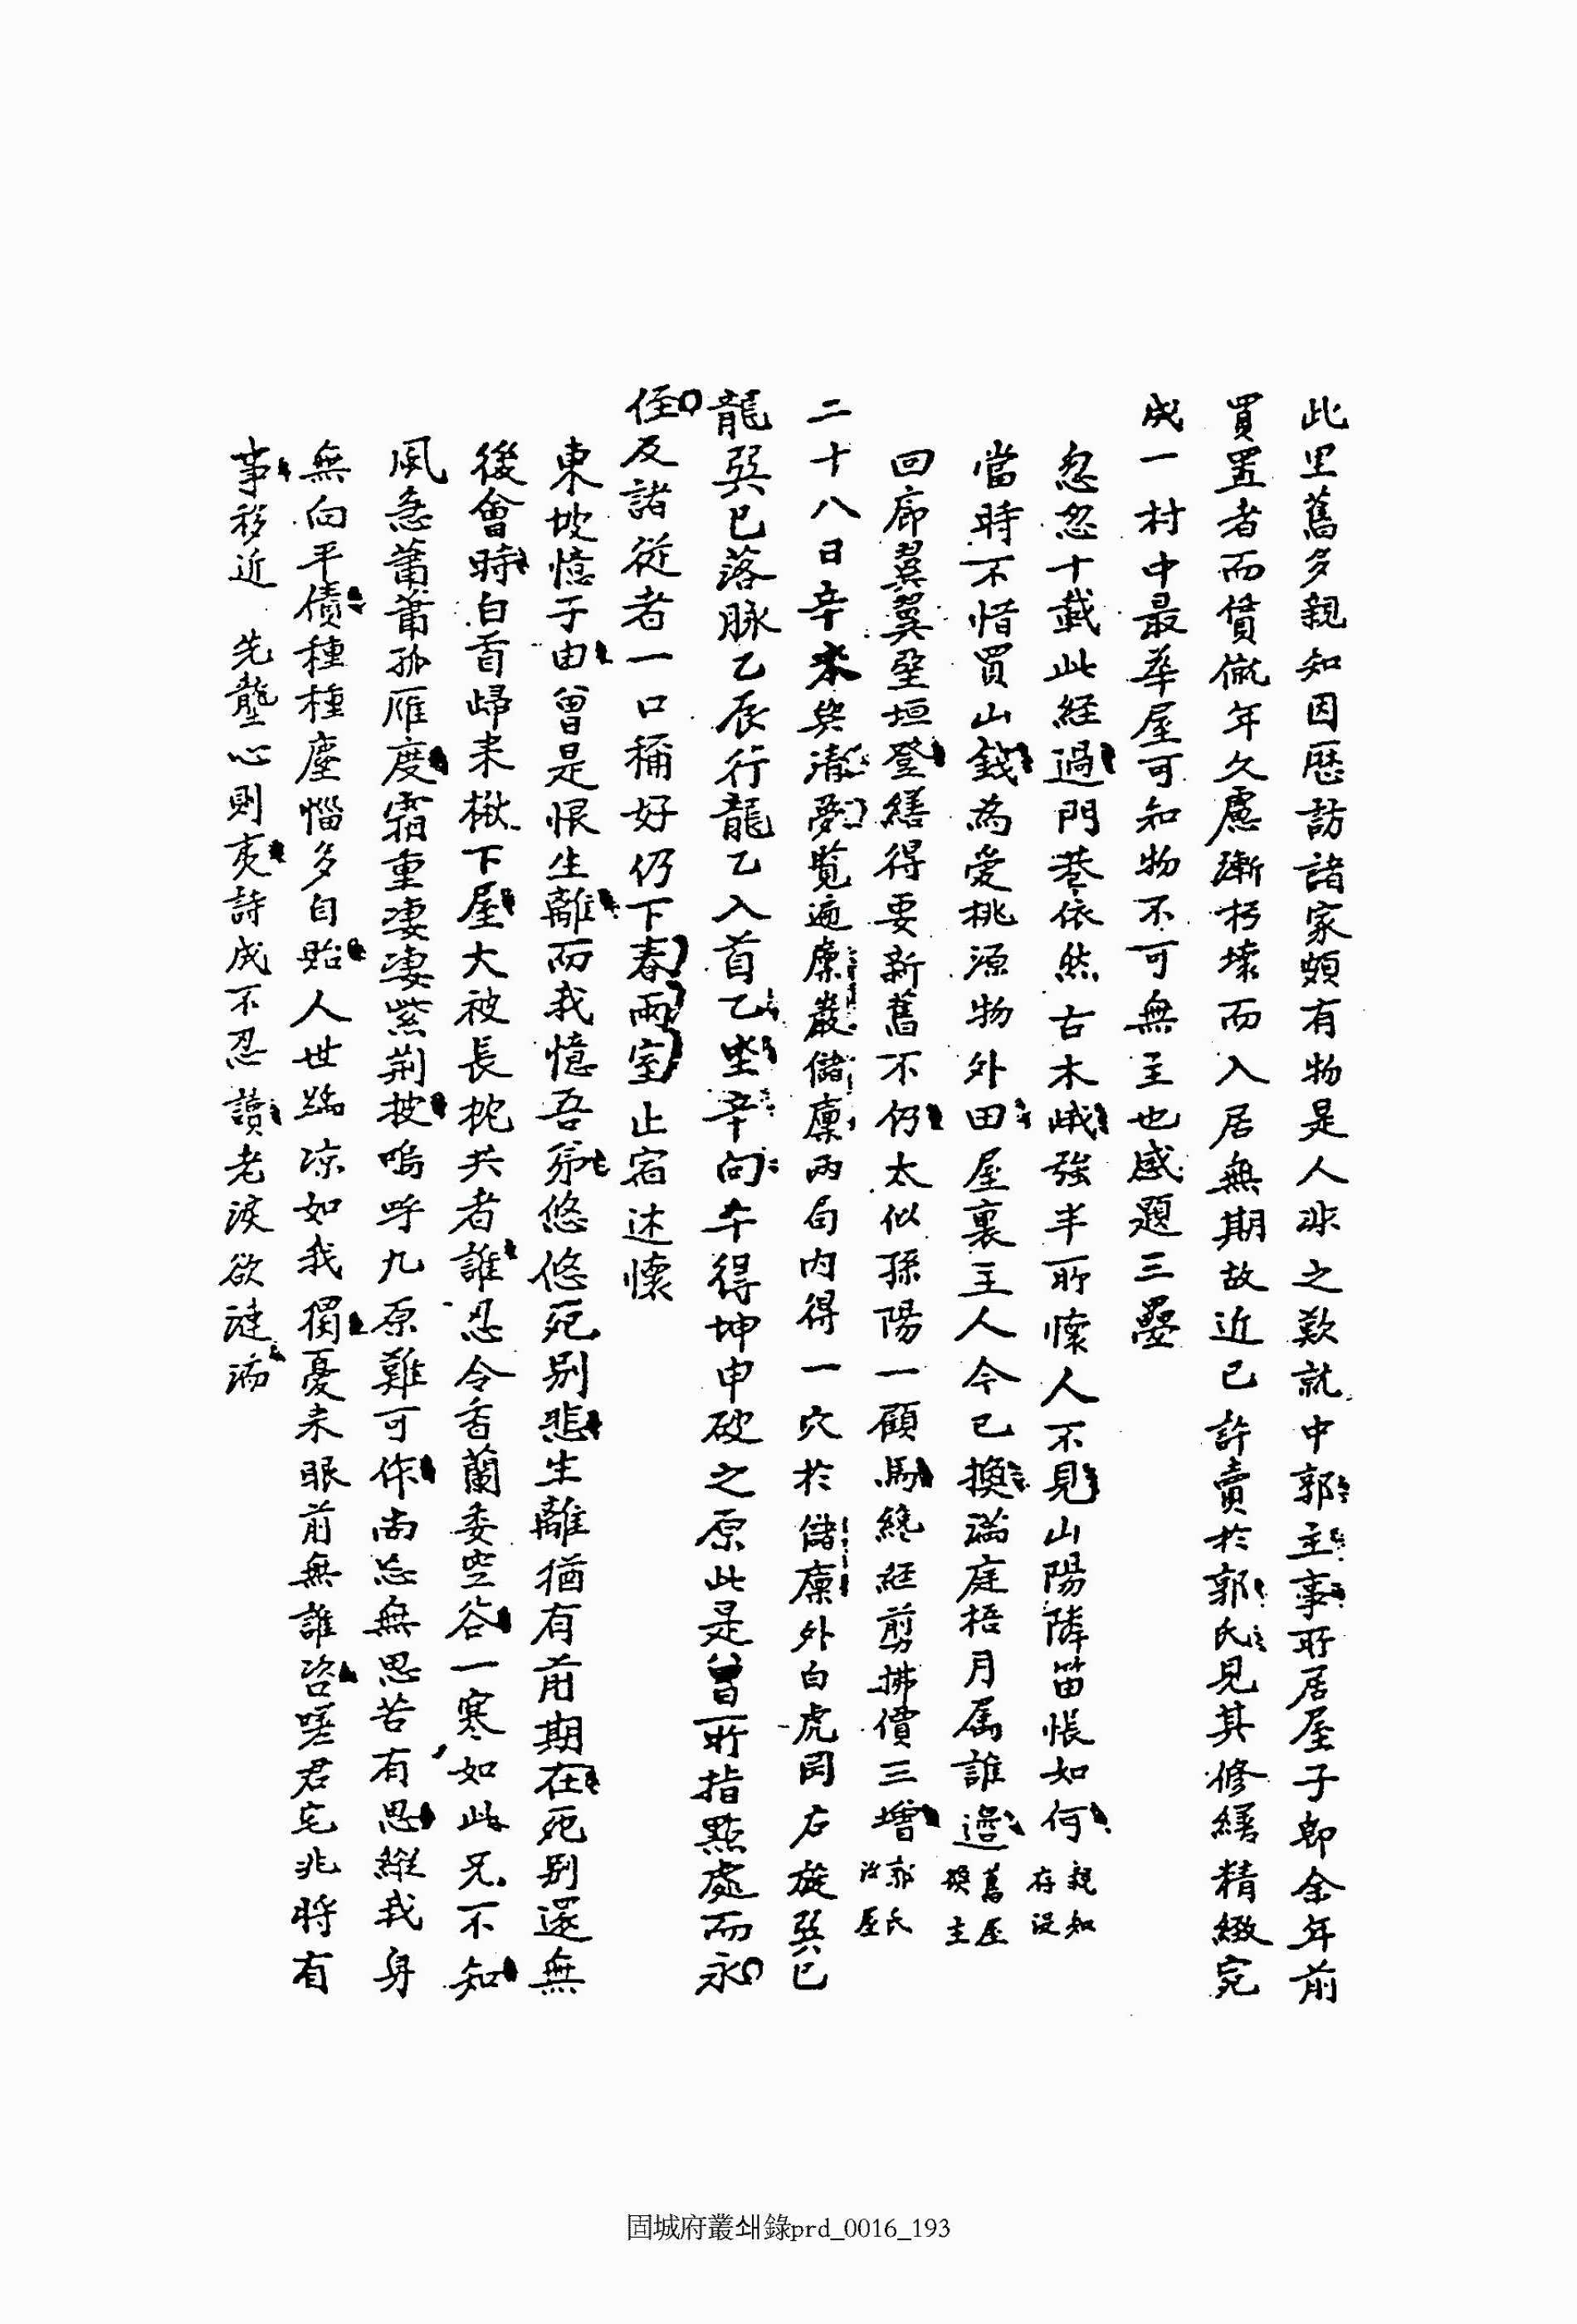 此里舊多親知因歷訪諸家頗有物是人非之歎就中郭主事所居屋子卽余年前
買置者而賃僦年久慮漸朽壞而入居無期故近已許賣於郭氏見其修繕精緻完
成一村中最華屋可知物不可無主也感題三疊
忽忽十載此経過門巷依然古木峨強半所懷人不見山陽隣笛悵如何親知存沒
當時不惜買山錢爲愛桃源物外田屋裏主人今已換滿庭梧月屬誰邊舊屋換主
回廊翼翼壁垣登繕得要新舊不仍太似孫陽一顧馬纔経剪拂價三增郭氏治屋
二十八日辛未與淸夢覽遍廩嚴儲廩兩局內得一穴於儲廩外白虎岡右旋巽巳
龍巽巳落脉乙辰行龍乙入首乙坐辛向午得坤申破之原此是曾所指點處而永
侄及諸從者一口稱好仍下春雨室止宿述懷
東坡憶子由曾是恨生離而我憶吾弟悠悠死別悲生離猶有前期在死別還無
後會時白首歸來楸下屋大被長枕共者誰忍令香蘭委空谷一寒如此兄不知
風急蕭蕭孤雁度霜重凄凄紫荊披嗚呼九原難可作尙忘無思苦有思縱我身
無向平債種種塵惱多自貽人世踽凉如我獨憂來眼前無誰咨嗟君宅兆將有
事移近 先壟心則夷詩成不忍讀老淚欲漣洏
固城府叢쇄錄prd_0016_193